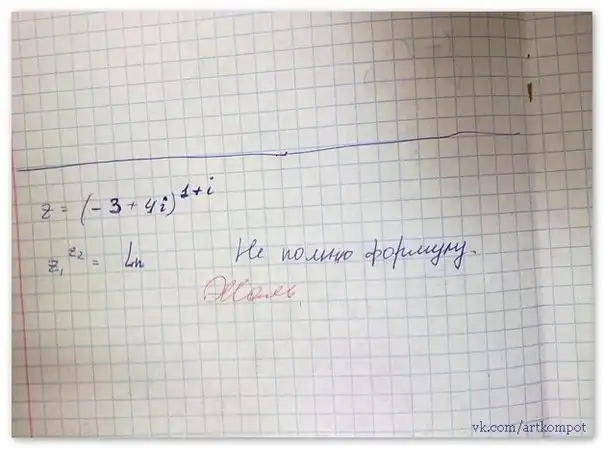 z = (-3+4i)^{1+i}
z₁^{z₂} = Ln Не помню формулу.
Жаль.
vk.com/artkompot